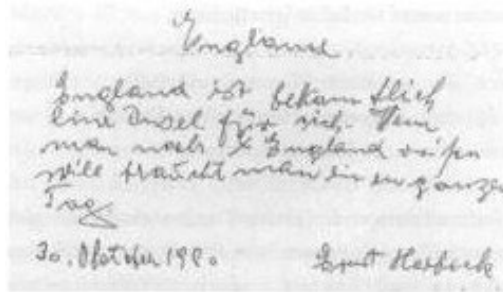 England.
England ist bekanntlich
eine Insel für sich. Wenn
man nach England reisen
will braucht man einen ganzen
Tag
30. Oktober 1980 Ernst Herbeck